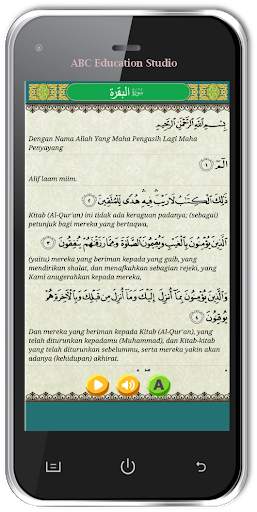 ABC Education Studio
سورة البقرة
بِسْمِ اللَّهِ الرَّحْمَٰنِ الرَّحِيمِ
Dengan Nama Allah Yang Maha Pengasih Lagi Maha
Penyayang
الٓمٓ ١
Alif laam miim.
ذَٰلِكَ الْكِتَٰبُ لَا رَيْبَ ۛ فِيهِ ۛ هُدًى لِّلْمُتَّقِينَ ٢
Kitab (Al-Qur'an) ini tidak ada keraguan padanya; (sebagai)
petunjuk bagi mereka yang bertaqwa,
الَّذِينَ يُؤْمِنُونَ بِالْغَيْبِ وَيُقِيمُونَ الصَّلَوٰةَ وَمِمَّا رَزَقْنَٰهُمْ يُنفِقُونَ ٣
(yaitu) mereka yang beriman kepada yang gaib, yang
mendirikan shalat, dan menafkahkan sebagian rejeki, yang
Kami anugerahkan kepada mereka,
وَالَّذِينَ يُؤْمِنُونَ بِمَا أُنزِلَ إِلَيْكَ وَمَا أُنزِلَ مِن قَبْلِكَ وَبِالْآخِرَةِ هُمْ
يُوقِنُونَ ٤
Dan mereka yang beriman kepada Kitab (Al-Qur'an), yang
telah diturunkan kepadamu (Muhammad), dan Kitab-kitab
yang telah diturunkan sebelummu, serta mereka yakin akan
adanya (kehidupan) akhirat.
A